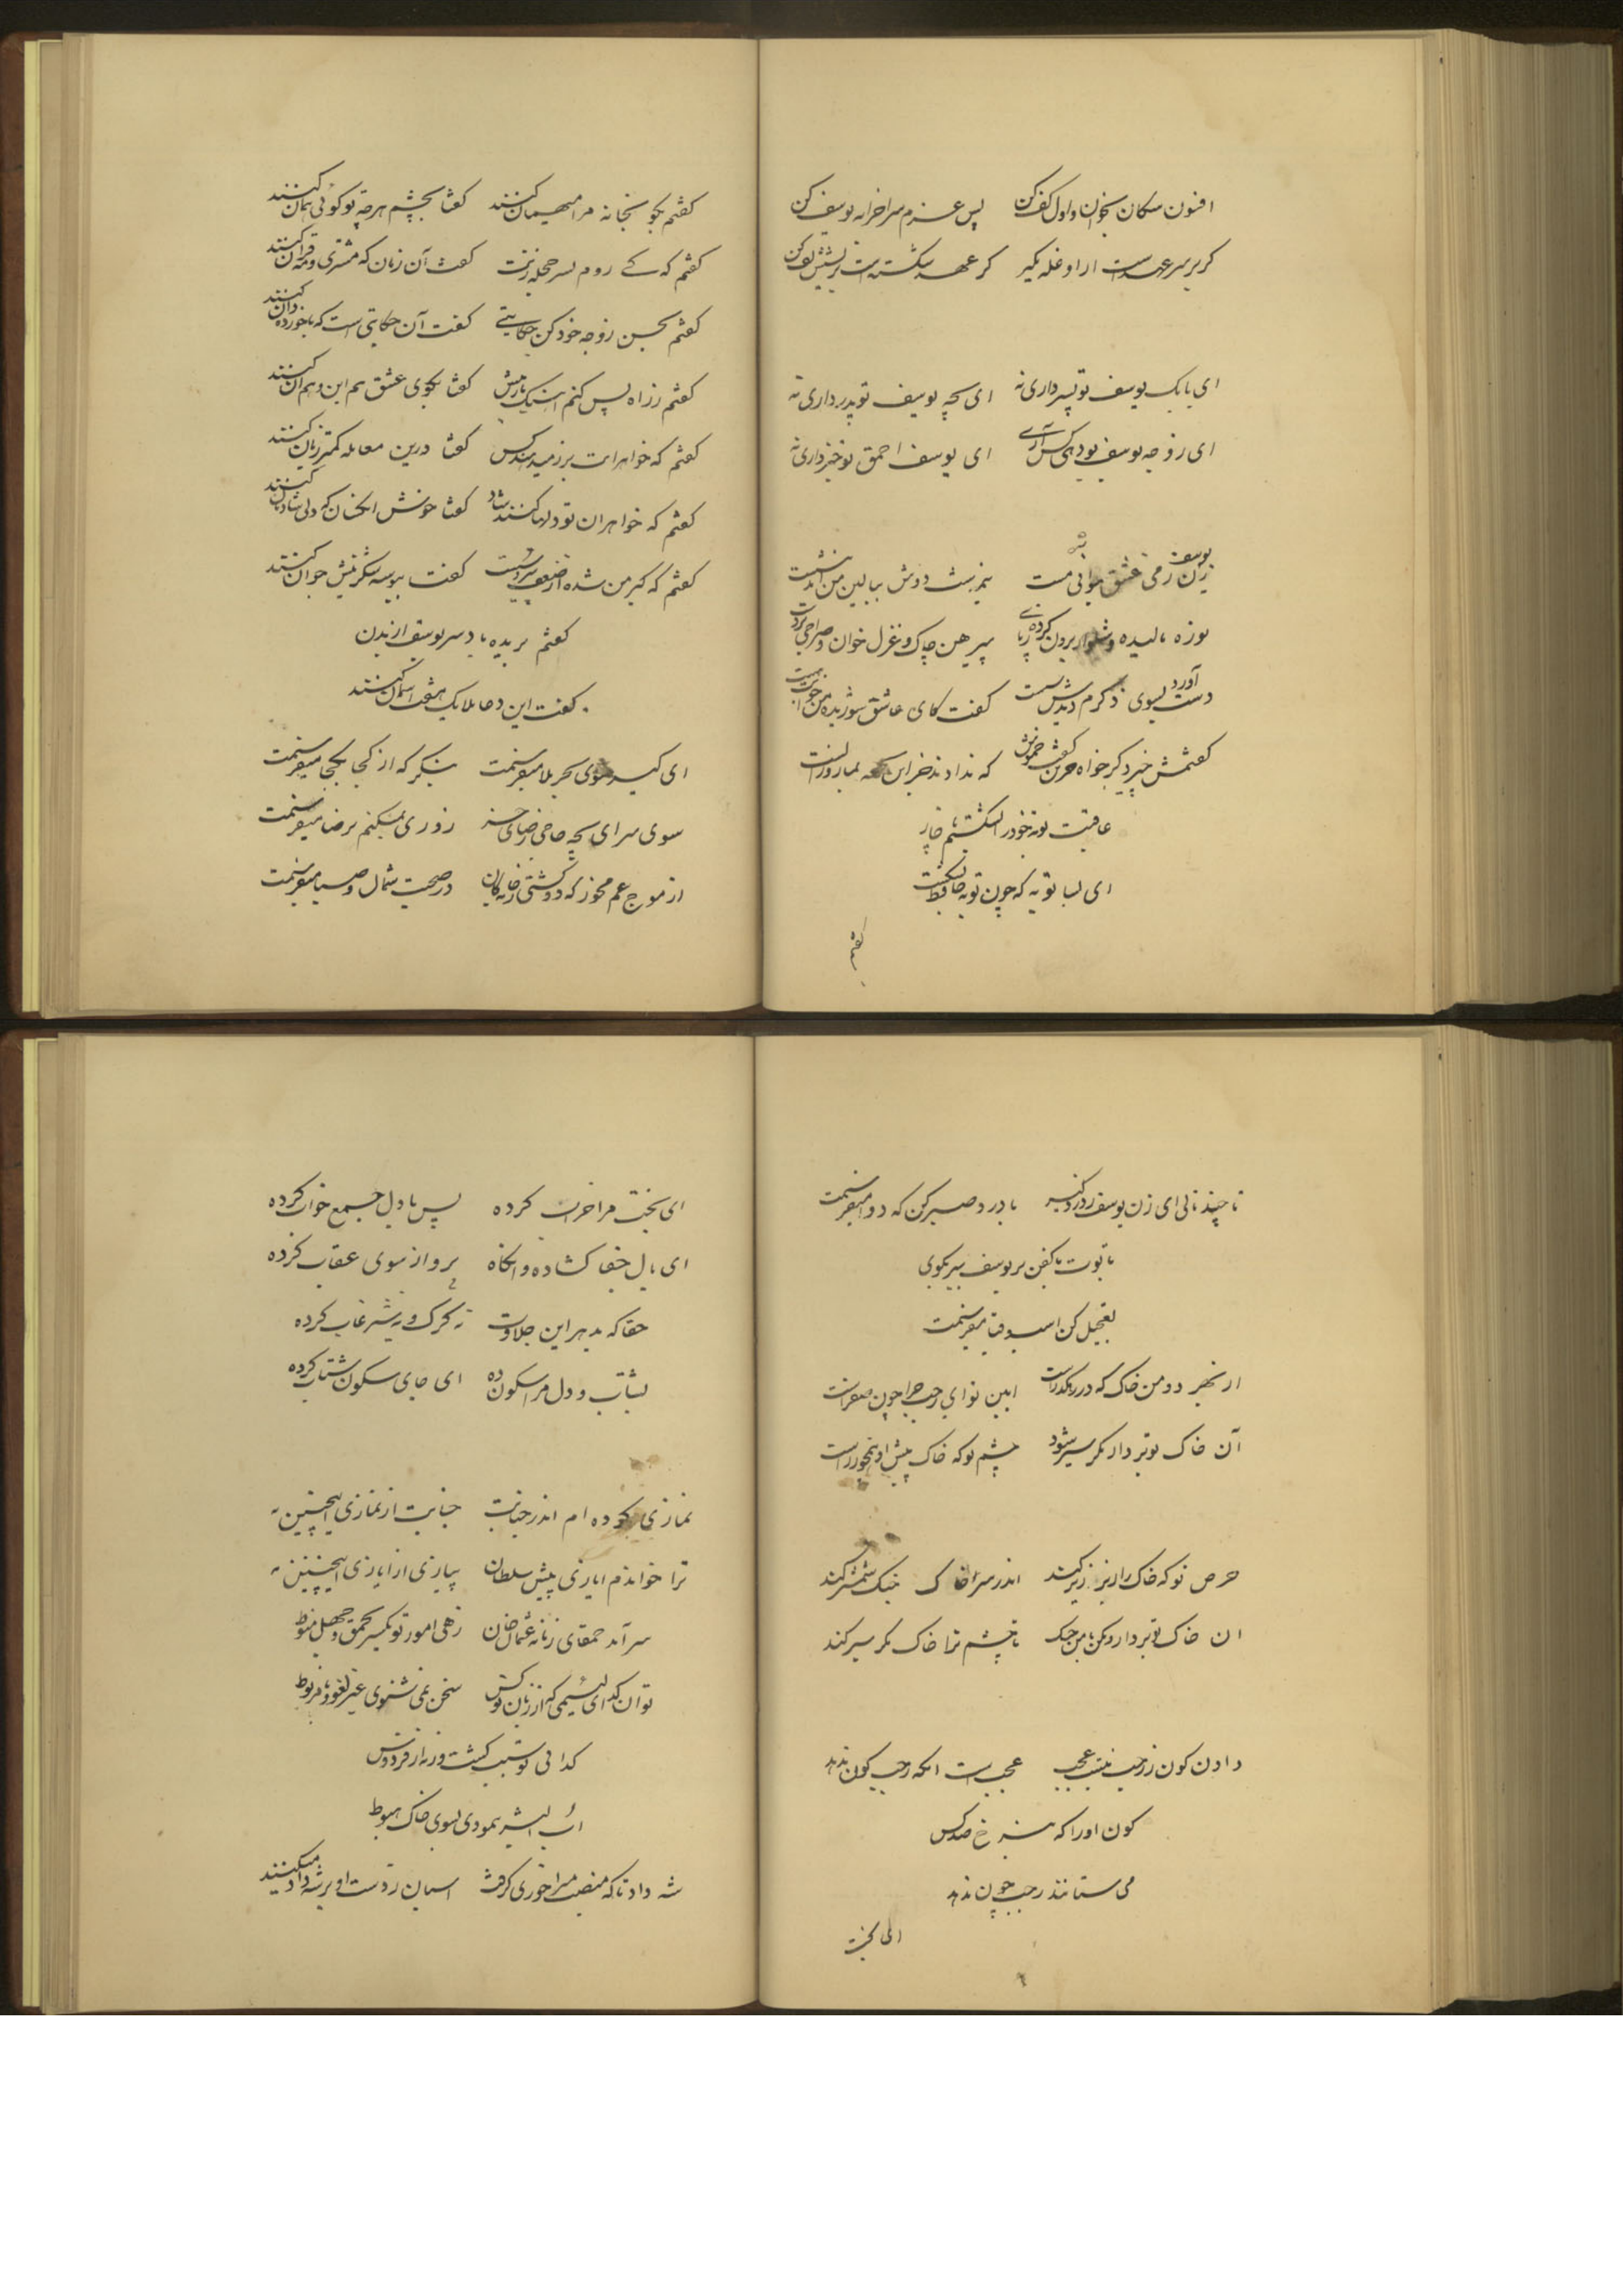 افسون سکان بخوان و اول کف کن پس عزم سرا خرابه یوسف کن
کر بر سر عهد است ازاو غله بگیر کر عهد شکسته است بریشش تف کن
ای بابک یوسف تو پسر داری نه ای بچه یوسف تو پدر داری نه
ای زوجه یوسف بود هیچ کس آرے ای یوسف احمق تو خبر داری نه
زن یوسف ز می عشق جوانی مست نیم شب دوش ببالین من آمد بنشست
نوزه مالیده و شلوار برون کرده ز پای پیرهن چاک و غزل خوان و صراحی در دست
دست آورد بسوی ذکرم دیدش سست کفت کای عاشق شوریده من خوابت هست
کفتمش خیر دکر خواه که ندادند جز این تحفه بما روز الست
عاقبت توبه خود را بشکستم ناچار
ای بسا توبه که چون توبه حافظ بشکست
کفتم
کفتم بکو بخانه مرا میهمان کنند کفتا بچشم هر چه تو کوئی همان کنند
کفتم که کے روم بسر حجله زنت کفت آن زمان که مشتری و مه قران کنند
کفتم بحسن زوجه خود کن حکایتے کفت آن حکایتی است که با خورده دان کنند
کفتم ز راه پس کنم اینک بارپیش کفتا بکوی عشق هم این و هم آن کنند
کفتم که خواهرانت کفتا درین معامله کمتر زیان کنند
کفتم که خواهران تو دلها کنند شاد کفتا خوش انکسان که دلی شادمان کنند
کفتم که کیر من شده از ضعف پیر و سست کفت ببوسه شکرینش جوان کنند
کفتم بریده باد سر یوسف از بدن
کفت این دعا ملایک هفت اسمان کنند
ای کیر سوی بحر بلا میفرستمت بنکر که از کجا بکجا میفرستمت
سوی سرای بچه حاجی رضای خسر زوری بمیکنم برضا میفرستمت
از موج غم مخور که دو کشتی ز خایکان در صحبت شمال و صبا میفرستمت
تا چند نالی ای زن یوسف ز درد کیر با درد صبر کن که دوا میفرستمت
تابوت با کفن بر یوسف ببر بکوی
تعجیل کن اسب و قبا میفرستمت
از بهر دو من خاک که در رهکذر است این نوای رجب چرا چون صفر است
آن خاک تو بر دار مکر سیر شود چشم تو که خاک پیش او همچو زر است
حرص تو که خاک را زبر زیر کند اندر سر خاک جنک شمشیر کند
ان خاک تو بردار و مکن با من جنک تا چشم ترا خاک مکر سیر کند
دادن کون ز رجب نیست عجب عجب است انکه رجب کون ندهد
کون او را که بنرخ صد کس
می ستانند رجب چون ندهد
ای بخت
ای بخت مرا خراب کرده پس با دل جمع خواب کرده
ای بال جفا کشاده وانکاه پرواز بسوی عقاب کرده
حقا که بدهر این جلادت نه کرک و نه شیر غاب کرده
بشتاب و دل مرا سکون ده ای جای سکون شتاب کرده
نمازی کرده ام اندر جنابت جنابت از نمازی اینچنین به
ترا خواندم ایازی پیش سلطان پیازی از ایازی اینچنین به
سر آمد حمقای زمانه عثمان خان زهی امور تو یکسر بحمق و جهل منوط
تو ان کدای لئیمی که از زبان تو کس سخن نمی شنوی غیر لغو و نامربوط
کدائی تو سبب کشت ورنه از فردوس
اب البشر ننمودی بسوی خاک هبوط
شه داد تا که منصب میراخوری کرفت اسبان ز دست او بر شه داد میکنند